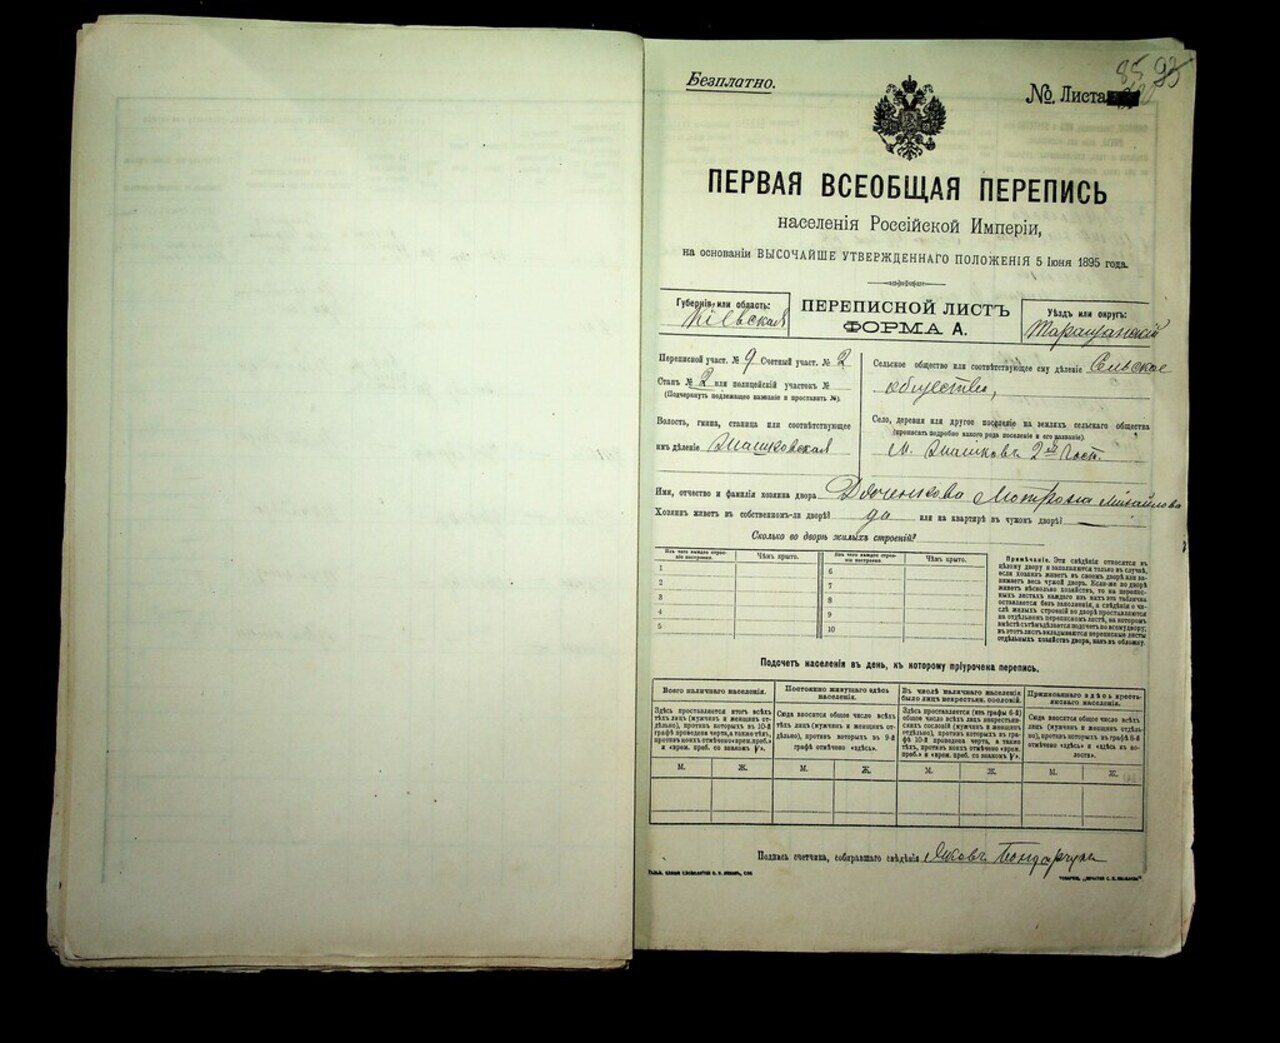 Безплатно.
№ Листа
85 95
ПЕРВАЯ ВСЕОБЩАЯ ПЕРЕПИСЬ
населенія Россійской Имперіи,
на основаніи ВЫСОЧАЙШЕ УТВЕРЖДЕННАГО ПОЛОЖЕНІЯ 5 Іюня 1895 года.
Губернія или область:
Кіевская
ПЕРЕПИСНОЙ ЛИСТЪ
ФОРМА А.
Уѣздъ или округъ:
Таращанскій
Переписной участ. № 9 Счетный участ. № 2
Станъ № 2 или полицейскій участокъ №
(Подчеркнуть подлежащее названіе и проставить №).
Волость, гмина, станица или соотвѣтствующее
имъ дѣленіе
Сельское общество или соотвѣтствующее ему дѣленіе Сельское
общество,
Село, деревня или другое поселеніе на земляхъ сельскаго общества
(прописать подробно какого рода поселеніе и его названіе).
Имя, отчество и фамилія хозяина двора Дяченкова Мотрона Михайлова
Хозяинъ живетъ въ собственномъ-ли дворѣ? да или на квартирѣ въ чужомъ дворѣ? —
Сколько во дворѣ жилыхъ строеній?
Изъ чего каждое строе-
ніе построено.
Чѣмъ крыто.
Изъ чего каждое строе-
ніе построено.
Чѣмъ крыто.
1
2
3
4
5
6
7
8
9
10
Примѣчаніе. Эти свѣдѣнія относятся къ
цѣлому двору и заполняются только въ случаѣ,
если хозяинъ живетъ въ своемъ дворѣ или за-
нимаетъ весь чужой дворъ. Если-же во дворѣ
живетъ нѣсколько хозяйствъ, то на перепис-
ныхъ листахъ каждаго изъ нихъ эта табличка
оставляется безъ заполненія, а свѣдѣнія о чи-
слѣ жилыхъ строеній во дворѣ проставляются
на отдѣльномъ переписномъ листѣ, на которомъ
вмѣстѣ съ тѣмъ дѣлается подсчетъ по всему двору;
въ этотъ листъ вкладываются переписные листы
отдѣльныхъ хозяйствъ двора, какъ въ обложку.
Подсчетъ населенія въ день, къ которому пріурочена перепись.
Всего наличнаго населенія.
Здѣсь проставляется итогъ всѣхъ
тѣхъ лицъ (мужчинъ и женщинъ от-
дѣльно), противъ которыхъ въ 10-й
графѣ проведена черта, а также тѣхъ,
противъ коихъ отмѣчено «врем. проб.»
и «врем. преб. со знакомъ V».
М. Ж.
Постоянно живущаго здѣсь
населенія.
Сюда вносится общее число всѣхъ
тѣхъ лицъ (мужчинъ и женщинъ от-
дѣльно), противъ которыхъ въ 9-й
графѣ отмѣчено «здѣсь».
М. Ж.
Въ числѣ наличнаго населенія
было лицъ некрестьян. сословій.
Здѣсь проставляется (изъ графы 6-й)
общее число всѣхъ лицъ некрестьян-
скихъ сословій (мужчинъ и женщинъ
отдѣльно), противъ которыхъ въ гра-
фѣ 10-й проведена черта, а также
тѣхъ, противъ коихъ отмѣчено «врем.
преб.» и «врем. преб. со знакомъ V».
М. Ж.
Приписаннаго здѣсь кресть-
янскаго населенія.
Сюда вносится общее число всѣхъ
лицъ (мужчинъ и женщинъ отдѣль-
но), противъ которыхъ въ графѣ 8-й
отмѣчено «здѣсь» и «здѣсь въ во-
лости».
М. Ж.
Подпись счетчика, собиравшаго свѣдѣнія Яковъ Бондарчукъ